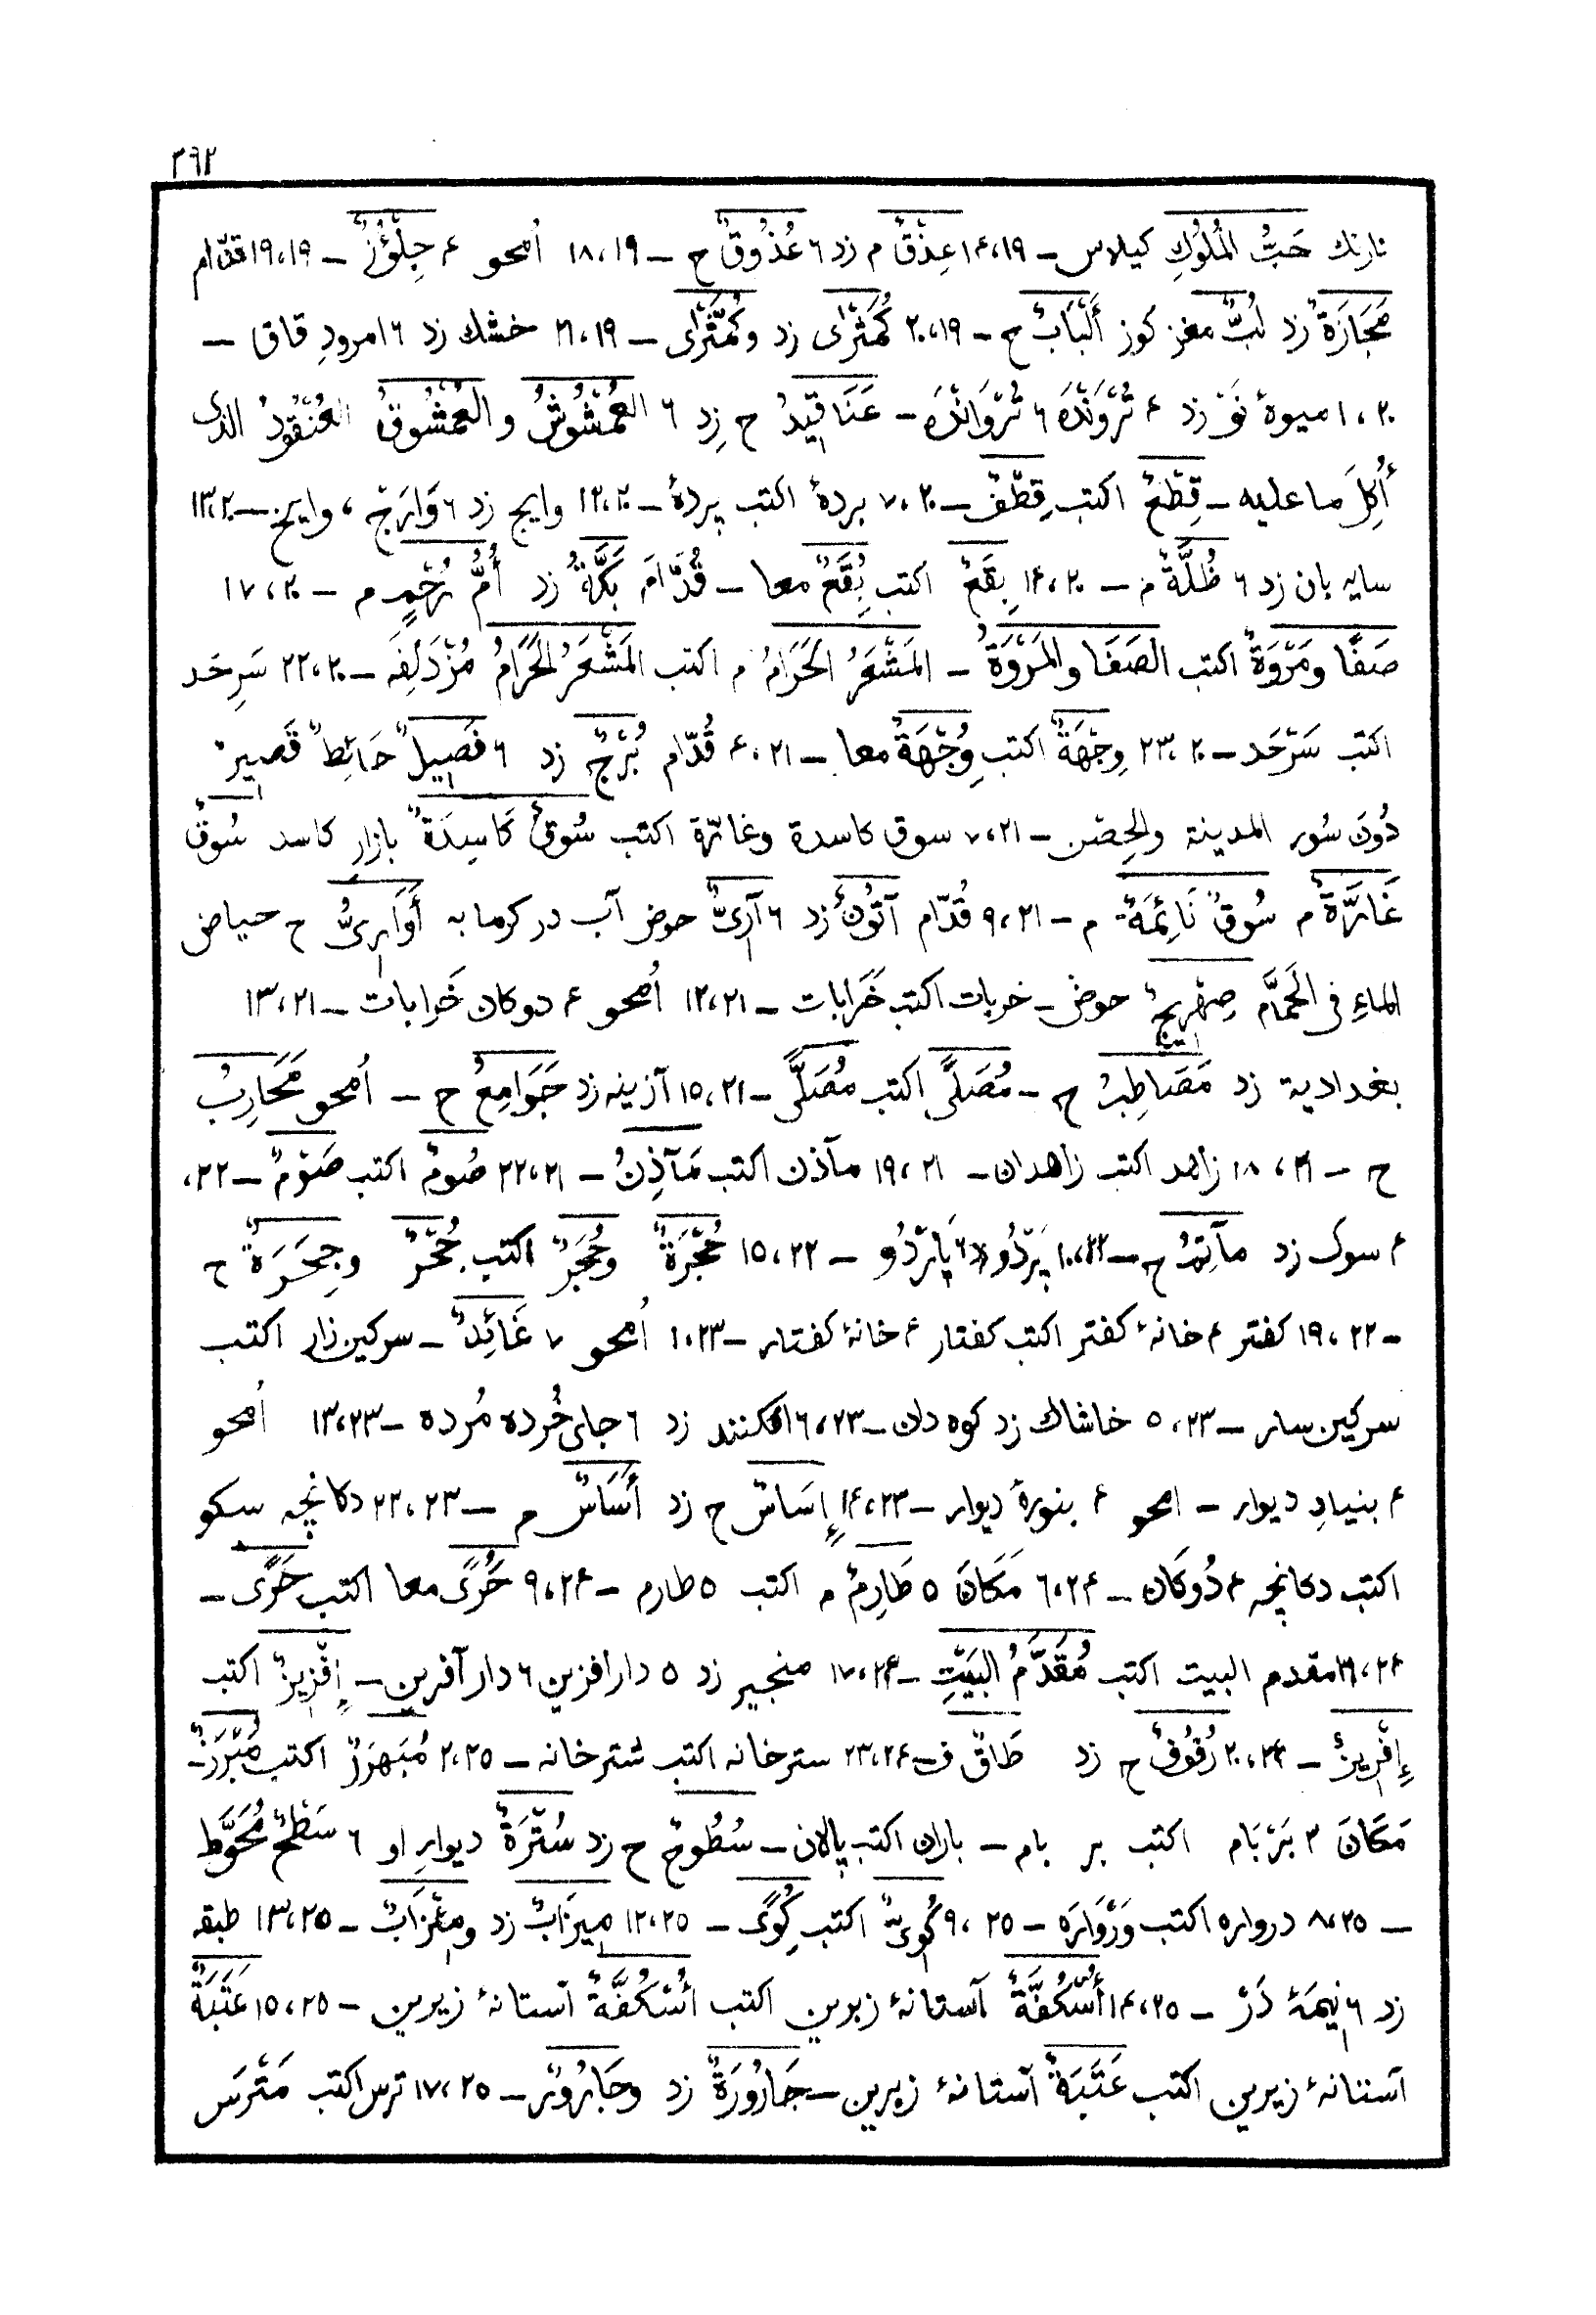 ٣٩٢
نارنك حَبُّ الْمُلُوكِ كيلاس – ١٤،١٩ عِذْقٌ م زد ٦ عُذُوقٌ ح – ١٨،١٩ اُمحو ۴ جِلَّوْزٌ – ١٩،١٩ قدّام
مَجَازَةٌ زد لُبٌّ مغز كوز أَلْبَابٌ ح – ٢٠،١٩ كُمَثْرَاى زد وكُمَّثْرَاى – ٢١،١٩ خشك زد ٦ امرودِ قاق –
١،٢٠ ميوهٔ نَوْ زد ۴ تُرْوَنْدَه ٦ تُرْوَانْدَه – عَنَاقِيدُ ح زِد ٦ العُمْشُوشُ والعُمْشُوقُ العُنْقُودُ الذى
أُكِلَ ما عليه – قِطْعٌ اكتب قِطْفٌ – ٧،٢٠ بردهٔ اكتب پردهٔ – ١٢،٢٠ وايج زد ٦ وَارَجْ ، وايج – ١٣،٢٠
سايه بان زد ٦ ظُلَّةٌ م – ١٤،٢٠ بِقَعٌ اكتب بُِقَعٌ معا – قُدَّامَ بَكَّةُ زد أُمُّ رُحْمٍ م – ١٧،٢٠
صَفًا ومَرْوَةٌ اكتب الصَفَا والمَرْوَةُ – المَشْعَرُ الحَرَامُ م اكتب المَشْعَرُ الحَرَامُ مُزْدَلِفَه – ٢٢،٢٠ سَرِحَد
اكتب سَرْحَد – ٢٣،٢٠ وِجْهَةٌ اكتب وُِجْهَةٌ معا – ۴،٢١ قُدّام بُرْجٌ زد ٦ فَصِيلٌ حَائِطٌ قَصِيرٌ
دُونَ سُور المدينة والحِصْن – ٧،٢١ سوق كاسدة وغارّة اكتب سُوقٌ كَاسِدَةٌ بازارِ كاسد سُوقٌ
غَارَّةٌ م سُوقٌ نَائِمَةٌ م – ٩،٢١ قُدّام آتُونٌ زد ٦ آرِىٌّ حوض آب در كرمابه أَوَارِىُّ ح حياض
الماءِ فى الحَمَّام صِهْرِيجٌ حوض – خربات اكتب خَرَابات – ١٢،٢١ اُمحو ۴ دوكان خَرابات – ١٣،٢١
بغدادية زد مَصَاطِبُ ح – مُصَلًّى اكتب مُصَلًّى – ١٥،٢١ آزينه زد جَوَامِعُ ح – اُمحو مَحَارِبُ
ح – ١٨،٢١ زاهد اكتب زاهدان – ١٩،٢١ مآذن اكتب مَآذِنُ – ٢٢،٢١ صُومٌ اكتب صَوْمٌ – ٢٢،
۴ سوك زد مآتِمُ ح – ١٠،٢٢ پَرْدُو ٦ پَارْدُو – ١٥،٢٢ حُجْرَةٌ وحُجَرٌ اكتب جُحْرٌ وجِحَرَةٌ ح
– ١٩،٢٢ كفتر ۴ خانهٔ كفتر اكتب كفتار ۴ خانهٔ كفتار – ١،٢٣ اُمحو ٧ غَائِدٌ – سركين زار اكتب
سركين سار – ٥،٢٣ خاشاك زد كوه دان – ٦،٢٣ افكنند زد ٦ جاى خُرده مُرده – ١٣،٢٣ اُمحو
۴ بنيادِ ديوار – امحو ۴ بنورهٔ ديوار – ١۴،٢٣ إِسَاسٌ ح زد أَسَاسٌ م – ٢٢،٢٣ دكانچه سكو
اكتب دكانچه ۴ دُوكَان – ٦،٢۴ مَكَانَ ٥ طَارِمٌ م اكتب ٥ طارم – ٩،٢۴ حُرًى معا اكتب حَرًى –
١٦،٢۴ مقدم البيت اكتب مُقَدَّمُ البَيْتِ – ١٧،٢۴ منجير زد ٥ دارافزين ٦ دار آفرين – إِفْزِيزٌ اكتب
إِفْرِيزٌ – ٢٠،٢۴ رُفُوفٌ ح زد طَاقٌ ف – ٢٣،٢۴ سترخانه اكتب شترخانه – ٢،٢٥ مُبَهرَزٌ اكتب مَبْرَزٌ –
مَكَانَ ٣ بَرْبَام اكتب بر بام – باران اكتب پالان – سُطُوحٌ ح زد سُتْرَةٌ ديوارِ او ٦ سَطْحٌ مُحَوَّط
– ٨،٢٥ درواره اكتب وَرْوَارَه – ٩،٢٥ كُوِىٌّ اكتب كُِوًى – ١٢،٢٥ مِيزَابٌ زد ومِئْزَابٌ – ١٣،٢٥ طبقه
زد ٦ نِيمَهٔ دَرْ – ١۴،٢٥ أُسْكُفَّةٌ آستانهٔ زبرين اكتب أُسْكُفَّةٌ آستانهٔ زيرين – ١٥،٢٥ عَتَبَةٌ
آستانهٔ زيرين اكتب عَتَبَةٌ آستانهٔ زبرين – جَارُورَةٌ زد وجَارُورٌ – ١٧،٢٥ ترس اكتب مَتْرَس